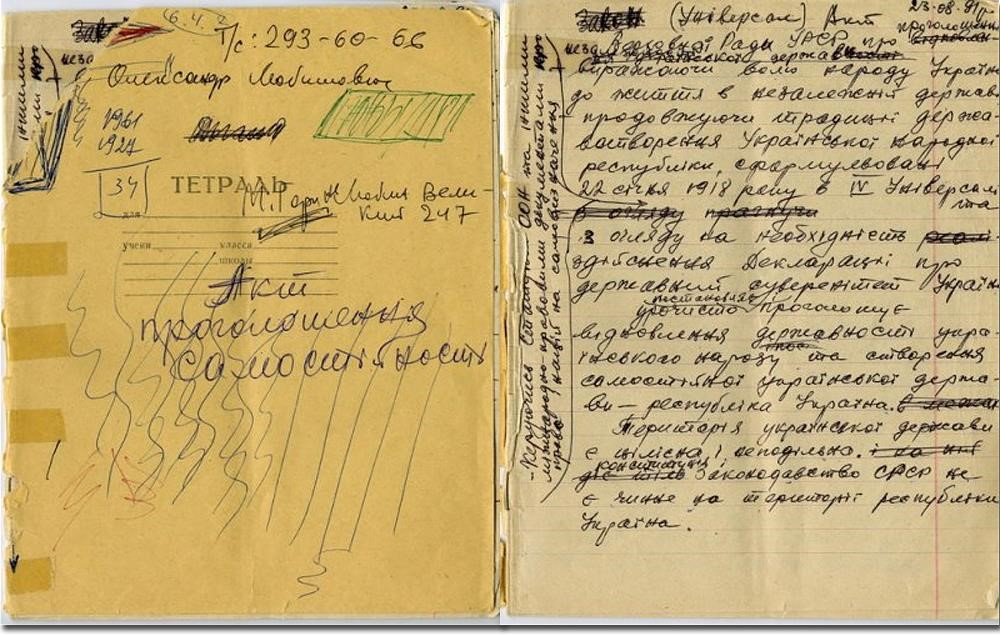 6.4.2
Т/с: 293-60-66
Олександр Любимович
1961
1927
34
ТЕТРАДЬ
для
М. Гарин Любит Вели-
кий 247
учени класса
школы
Акт
проголошення
самостійности
Закон (Універсал) Акт
23.08.91 р.
проголошення
Верховної Ради УРСР про
української держав
виражаючи волю народу Україн
до життя в незалежній державі
продовжуючи традиції держа-
вотворення Української народної
республіки, сформульовані
22 січня 1918 року в IV Універсалі
та
в огляду
з огляду на необхідність
здійснення Декларації про
державний суверенітет України
урочисто проголошує
відновлення державності укра-
їнського народу та створення
самостійної української держа-
ви — республіка Україна.
Територія української держави
є цілісна і неподільна.
конституція і
законодавство СРСР не
є чинне на території республіки
Україна.
- Керуючись Статутом ООН та іншими
міжнародно-правовими документами про
право націй на самовизначення